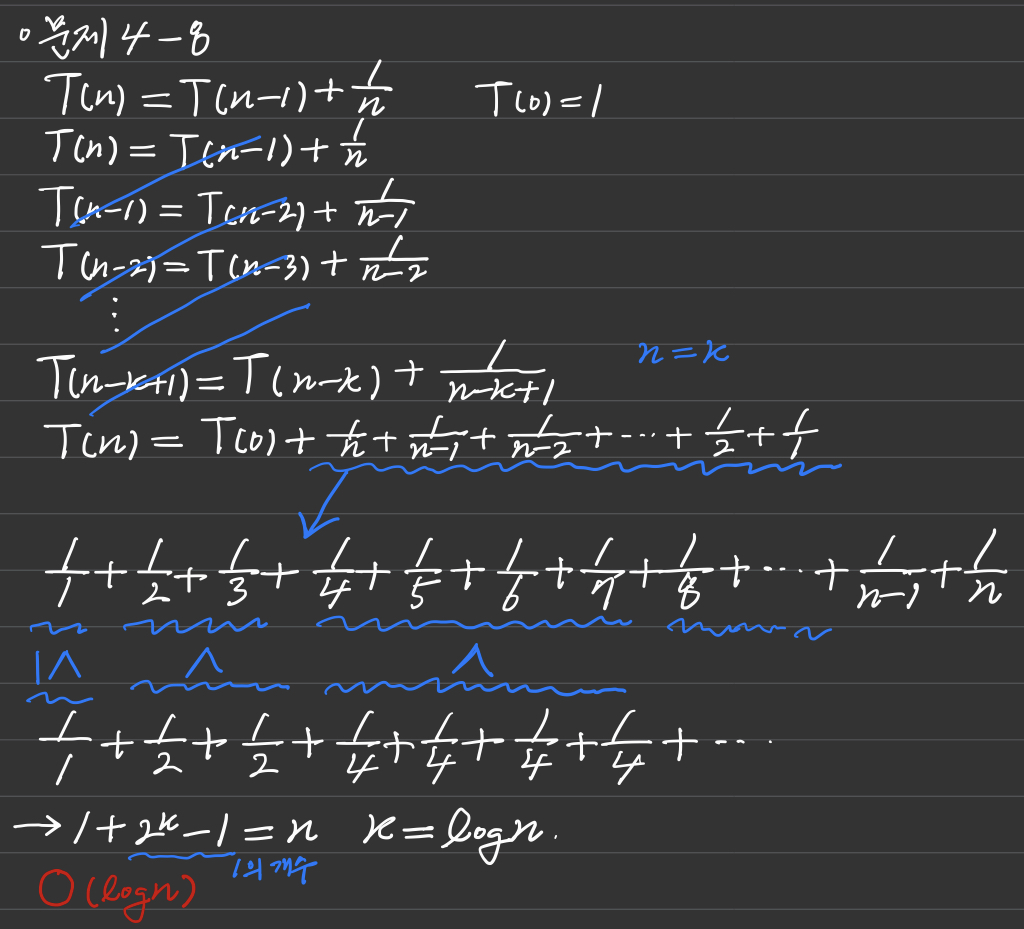 ◦문제 4-8
T(n) = T(n-1) + 1/n    T(0) = 1
T(n) = T(n-1) + 1/n
T(n-1) = T(n-2) + 1/(n-1)
T(n-2) = T(n-3) + 1/(n-2)
⋮
n = k
T(n-k+1) = T(n-k) + 1/(n-k+1)
T(n) = T(0) + 1/n + 1/(n-1) + 1/(n-2) + ⋯ + 1/2 + 1/1
1/1 + 1/2 + 1/3 + 1/4 + 1/5 + 1/6 + 1/7 + 1/8 + ⋯ + 1/(n-1) + 1/n
|∧ ∧ ∧
1/1 + 1/2 + 1/2 + 1/4 + 1/4 + 1/4 + 1/4 + ⋯
→ 1 + 2^k - 1 = n    k = log n.
1의 개수
O(log n)